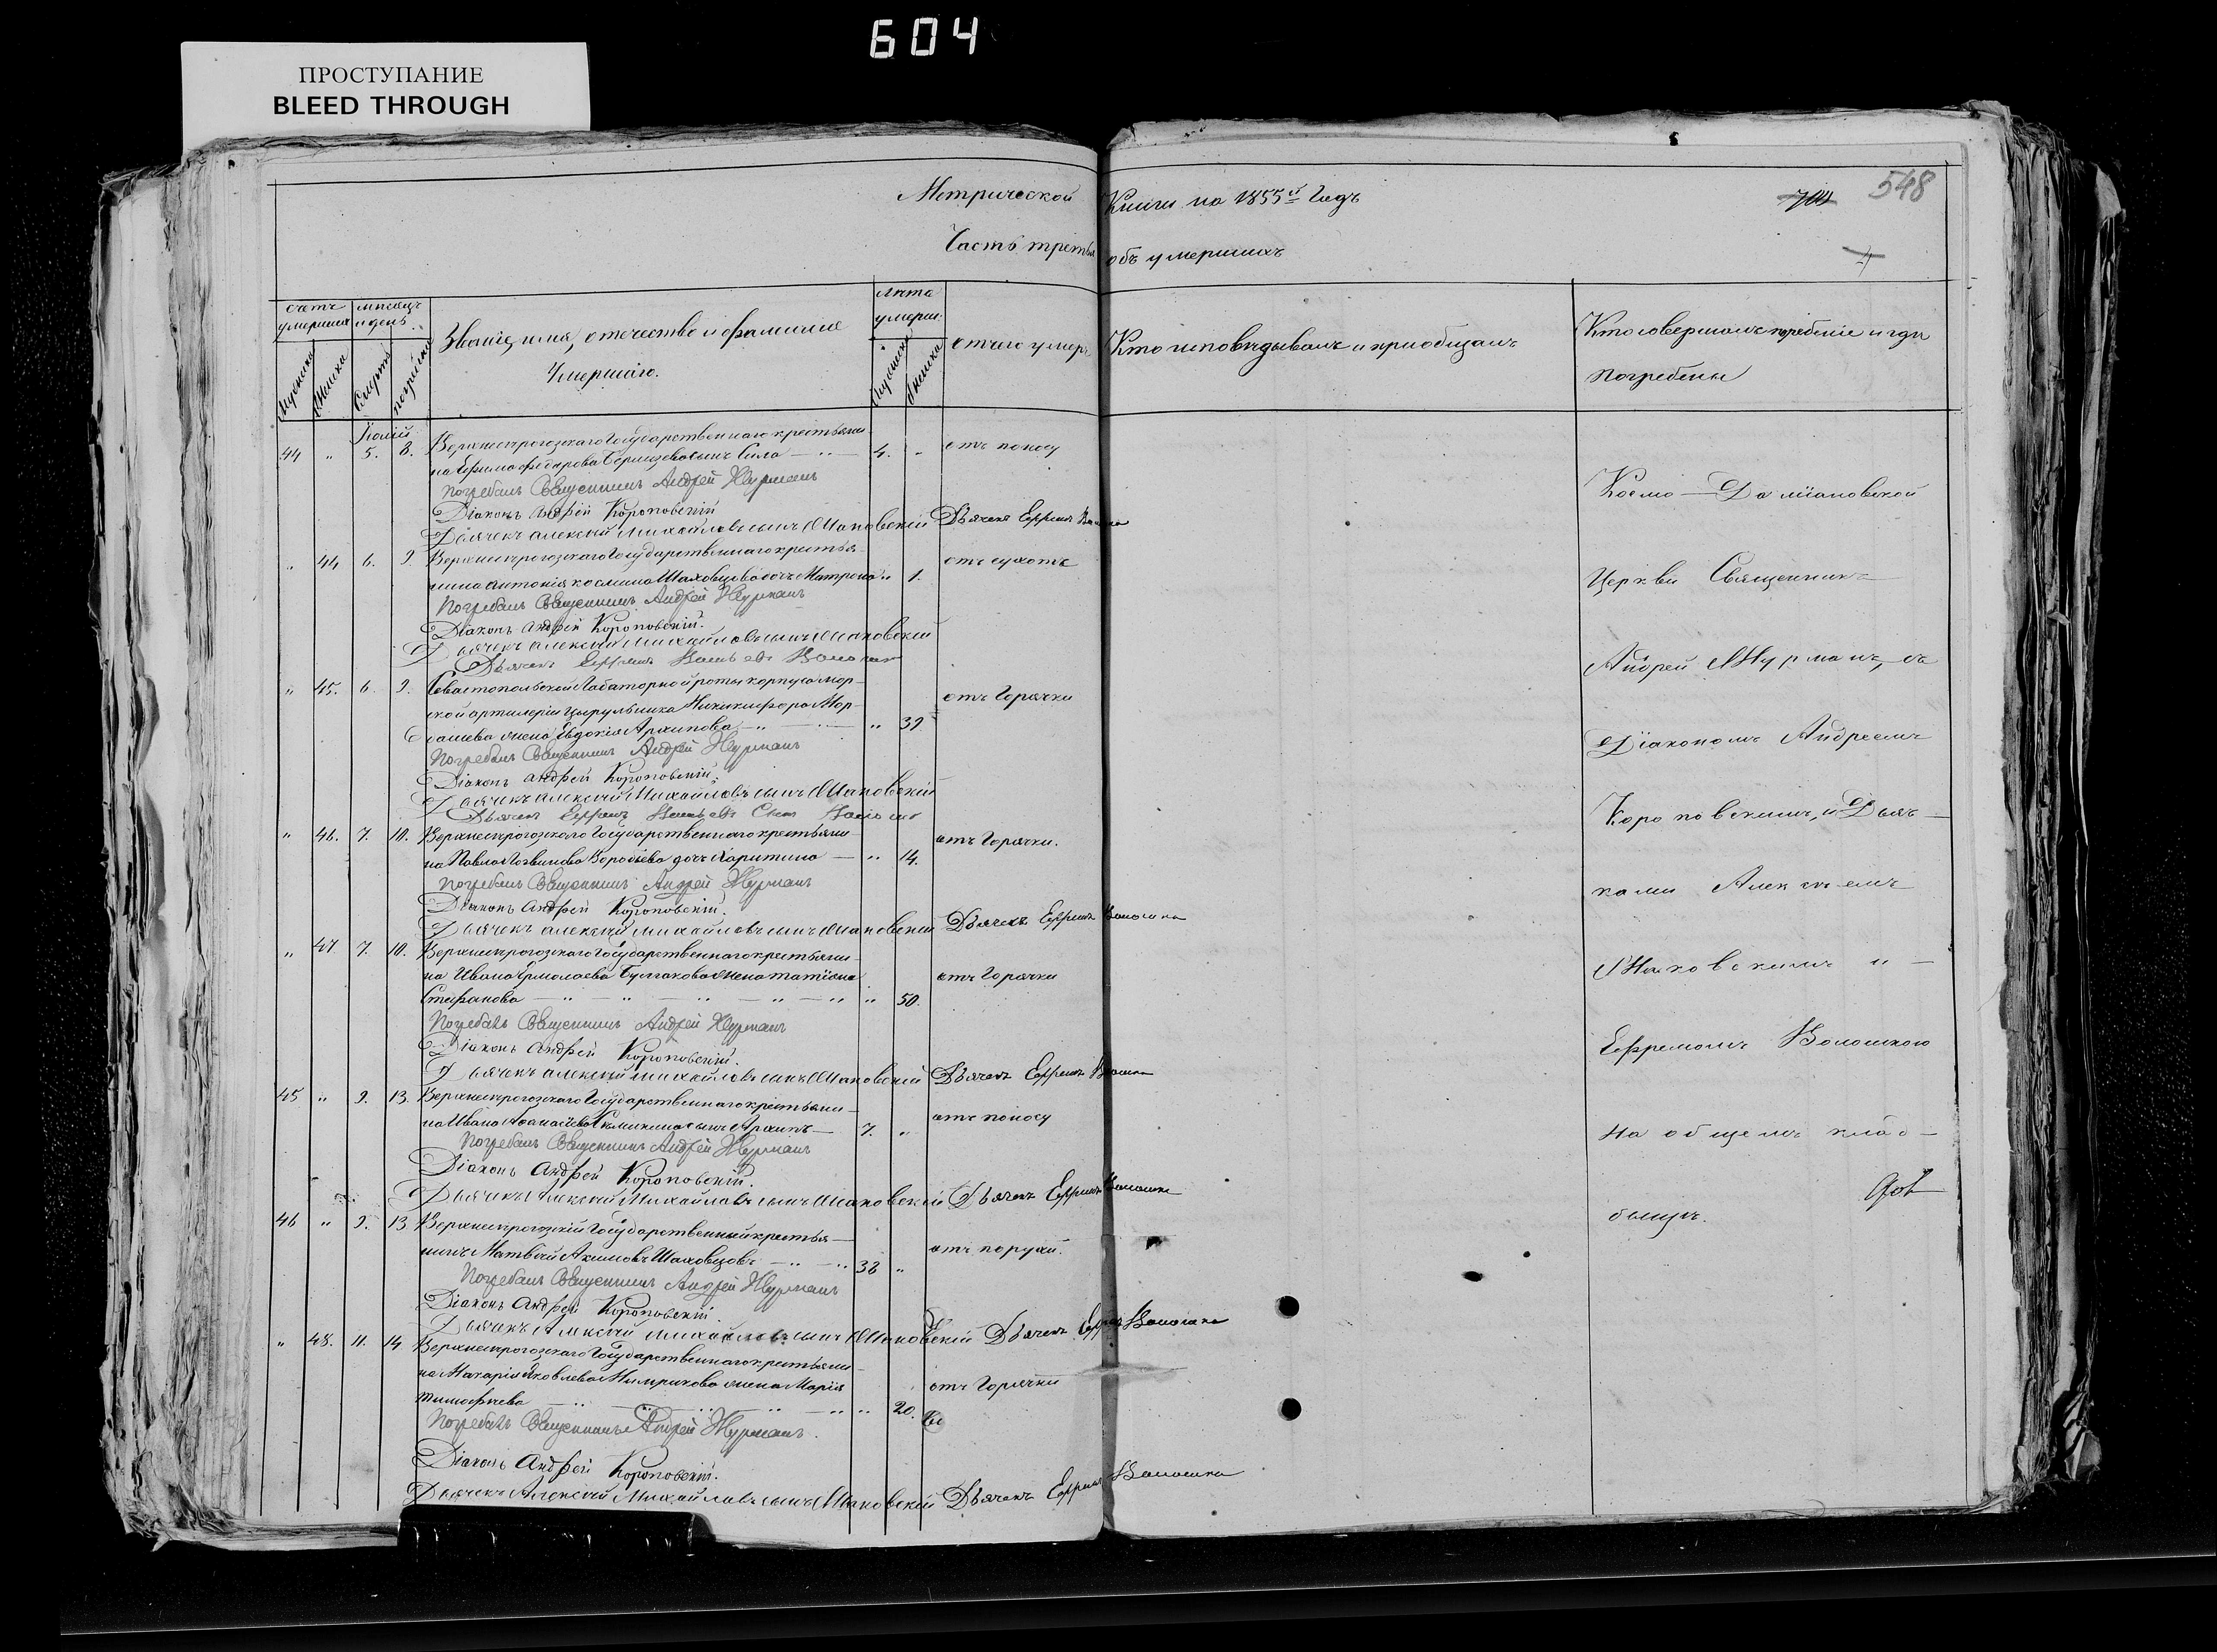 604
ПРОСТУПАНИЕ
BLEED THROUGH
548
Метрической Книги на 1855й Годъ
Часть третья объ умершихъ
счетъ умершихъ
мѣсяцъ и день
Званіе, имя, отечество и фамиліе
Умершаго.
лѣта умерш:
отчего умеръ
Кто исповѣдывалъ и пріобщалъ
Кто совершалъ погребеніе и гдѣ
погребены
Мужеска
Женска
Смерти
погребенія
Мужеска
Женска
Іюлій
44 " 5. 8. Верхнерогозскаго Государственнаго крестьяни-
на Ефима Федорова сынъ Сила 4. " отъ поносу
Погребалъ Священникъ Андрей Журманъ
Діаконъ Андрей Короповскій
Дьячекъ Алексій Михайловъ сынъ Маковскій Дьячекъ Ефремъ Волошка
" 44 6. 9. Верхнерогозскаго Государственнаго крестья-
нина Антонія Космина Шаховцова дочь Матрона " 1. отъ сухотъ
Погребалъ Священникъ Андрей Журманъ
Діаконъ Андрей Короповскій.
Дьячекъ Алексій Михайловъ сынъ Маковскій
Дьячекъ Ефремъ Волошка
" 45. 6. 9. Севастопольской Лабаторной роты корпуса мор-
ской артилеріи цырульника Никикифора Мор-
дашева жена Евдокія Архипова " 39 отъ Горячки
Погребалъ Священникъ Андрей Журманъ
Діаконъ Андрей Короповскій.
Дьячекъ Алексій Михайловъ сынъ Маковскій
Дьячекъ Ефремъ
" 46. 7. 10. Верхнерогозскаго Государственнаго крестьяни-
на Павла Логвинова Воробіева дочь Харитина " 14. отъ Горячки.
Погребалъ Священникъ Андрей Журманъ
Діаконъ Андрей Короповскій.
Дьячекъ Алексій Михайловъ сынъ Маковскій Дьячекъ Ефремъ Волошка
" 47 7. 10. Верхнерогозскаго Государственнаго крестьяни-
на Ивана Ермолаева Булгакова жена Татіана
Стефанова " 50. отъ Горячки
Погребалъ Священникъ Андрей Журманъ
Діаконъ Андрей Короповскій.
Дьячекъ Алексій Михайловъ сынъ Маковскій Дьячекъ Ефремъ Волошка
45 " 9. 13. Верхнерогозскаго Государственнаго крестьяни-
на Ивана Афанасіева сынъ Архипъ 7. " отъ поносу
Погребалъ Священникъ Андрей Журманъ
Діаконъ Андрей Короповскій.
Дьячекъ Алексій Михайловъ сынъ Маковскій Дьячекъ Ефремъ Волошка
46 " 9. 13 Верхнерогозскій Государственный крестья-
нинъ Матвѣй Акимовъ Шаховцовъ 38 " отъ
Погребалъ Священникъ Андрей Журманъ
Діаконъ Андрей Короповскій.
Дьячекъ Алексій Михайловъ сынъ Маковскій Дьячекъ Ефремъ Волошка
" 48. 11. 14 Верхнерогозскаго Государственнаго крестьяни-
на Макарія Яковлева жена Марія
Тимофѣева " 20. отъ Горячки
Погребалъ Священникъ Андрей Журманъ.
Діаконъ Андрей Короповскій.
Дьячекъ Алексій Михайловъ сынъ Маковскій Дьячекъ Ефремъ Волошка
Космо-Даміановской
Церкви Священникъ
Андрей Журманъ, съ
Діакономъ Андреемъ
Короповскимъ, и Дьяч-
ками Алексѣемъ
Маковскимъ и
Ефремомъ Волошкою
на общемъ клад-
бищѣ.